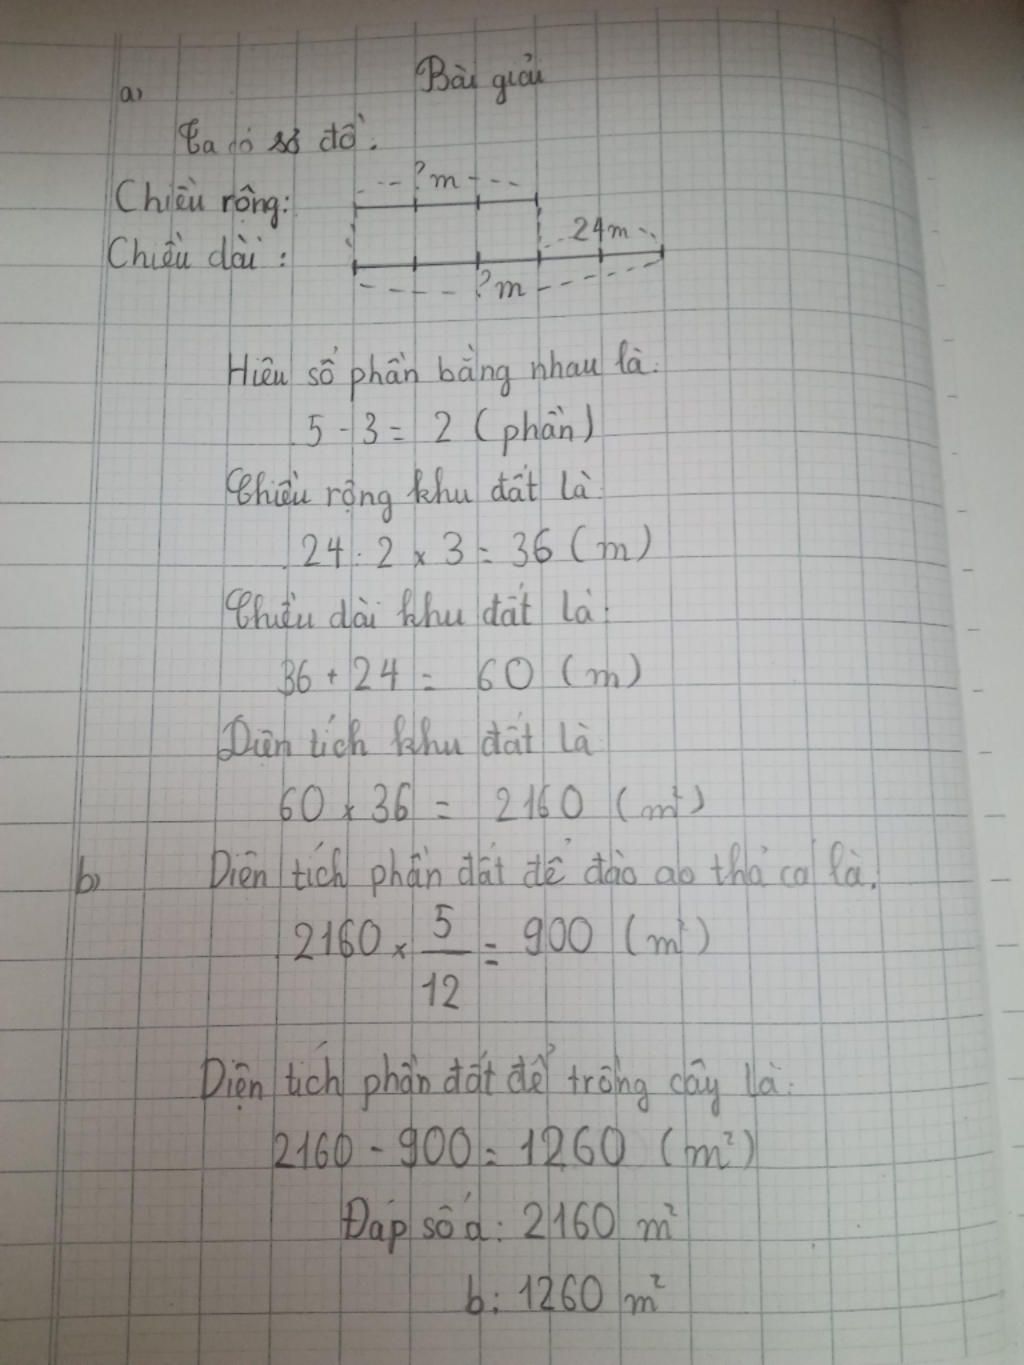 Bài giải
a)
Ta có sơ đồ:
? m
Chiều rộng:
24m
Chiều dài:
? m
Hiệu số phần bằng nhau là:
5 - 3 = 2 (phần)
Chiều rộng khu đất là:
24 : 2 x 3 = 36 (m)
Chiều dài khu đất là:
36 + 24 = 60 (m)
Diện tích khu đất là
60 x 36 = 2160 (m²)
b) Diện tích phần đất để đào ao thả cá là.
2160 x 5/12 = 900 (m²)
Diện tích phần đất để trồng cây là:
2160 - 900 = 1260 (m²)
Đáp số a: 2160 m²
b: 1260 m²